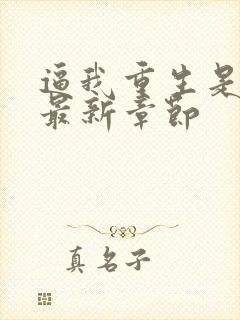 逼我重生是
最新章节
真名子